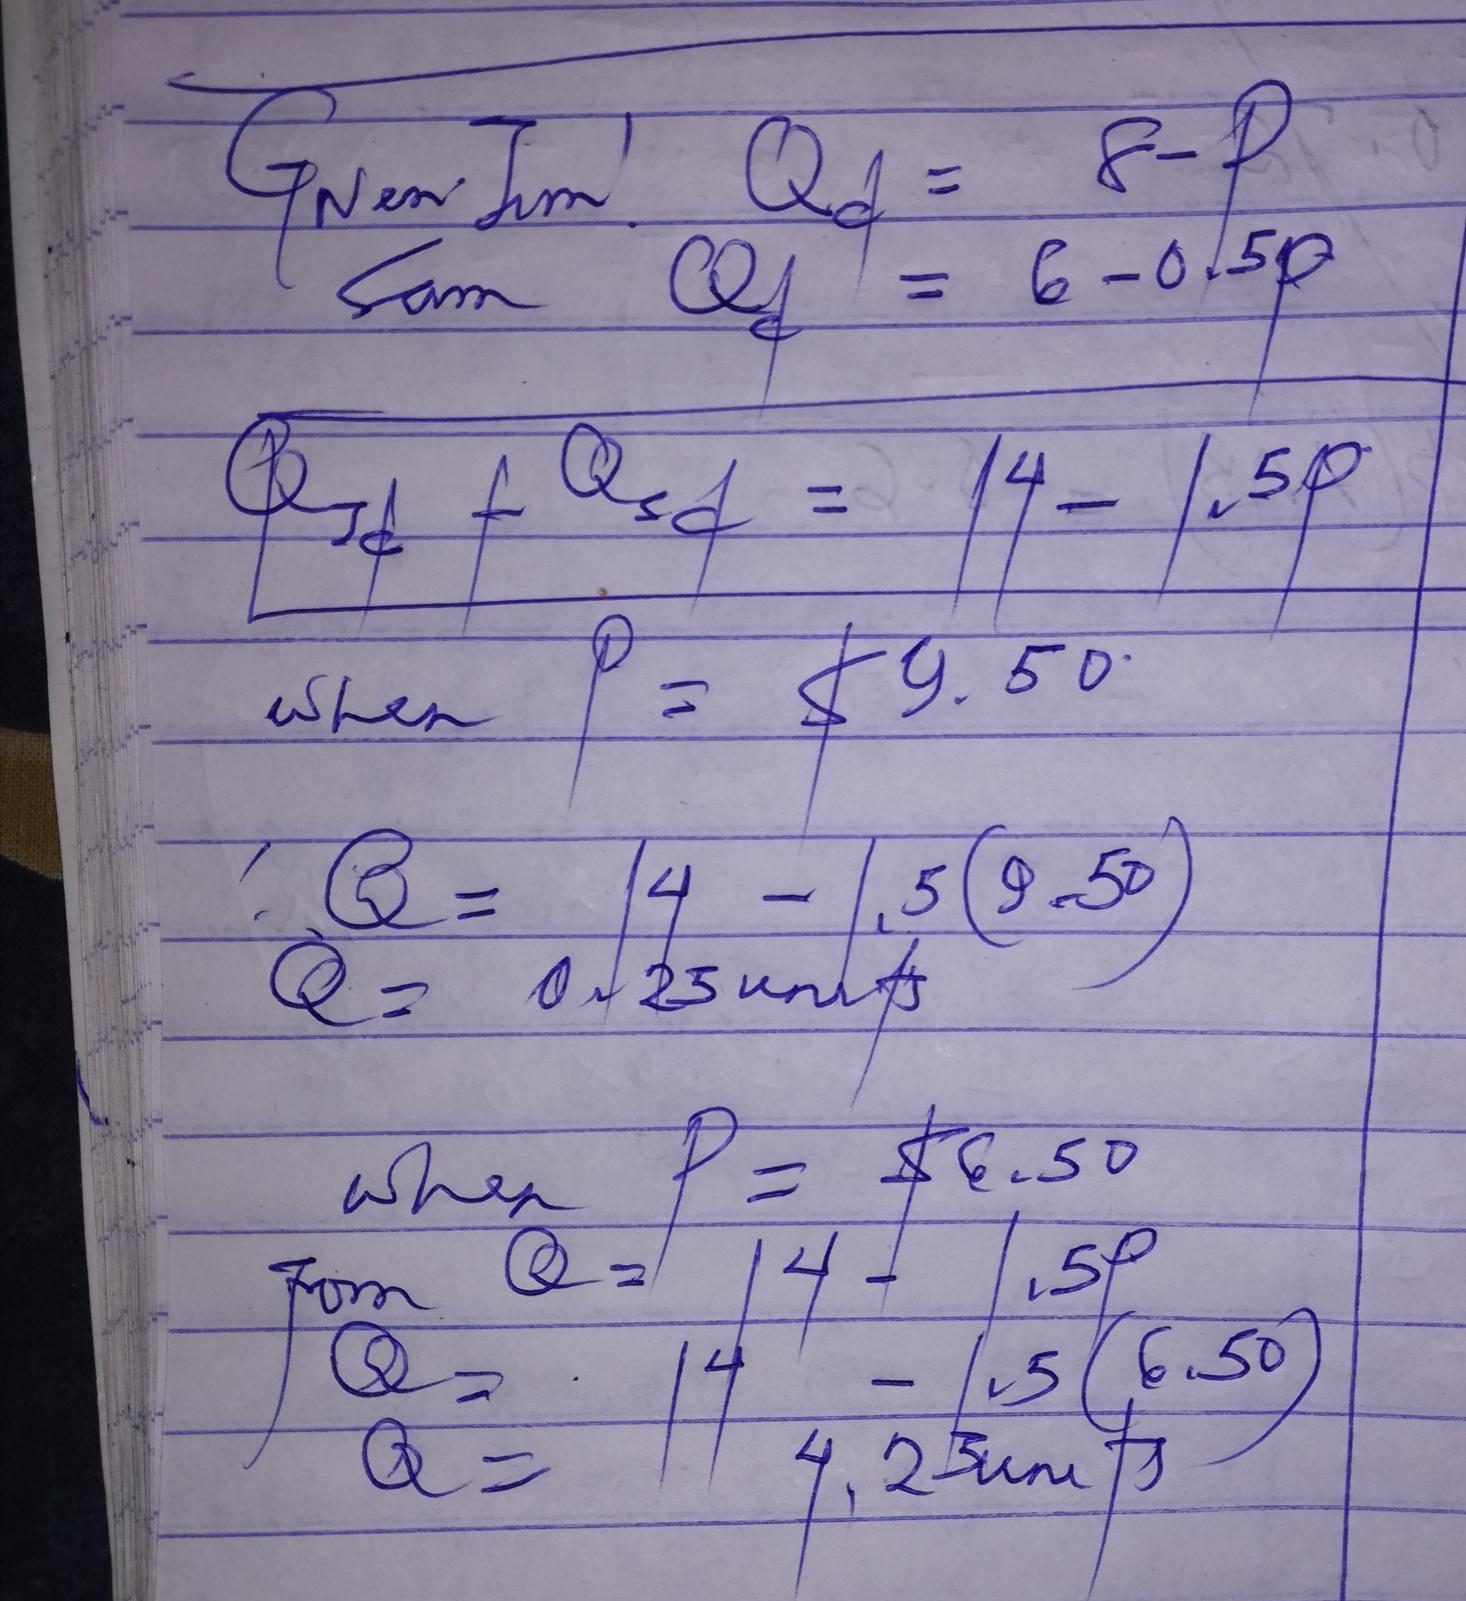 Given Jim! Qd = 8-P
Sam Qd = 6-0.5P
QJd + Qsd = 14 - 1.5P
when P = $9.50
Q = 14 - 1.5(9.50)
Q = 0.25units
when P = $6.50
From Q = 14 - 1.5P
Q = 14 - 1.5(6.50)
Q = 4.25units